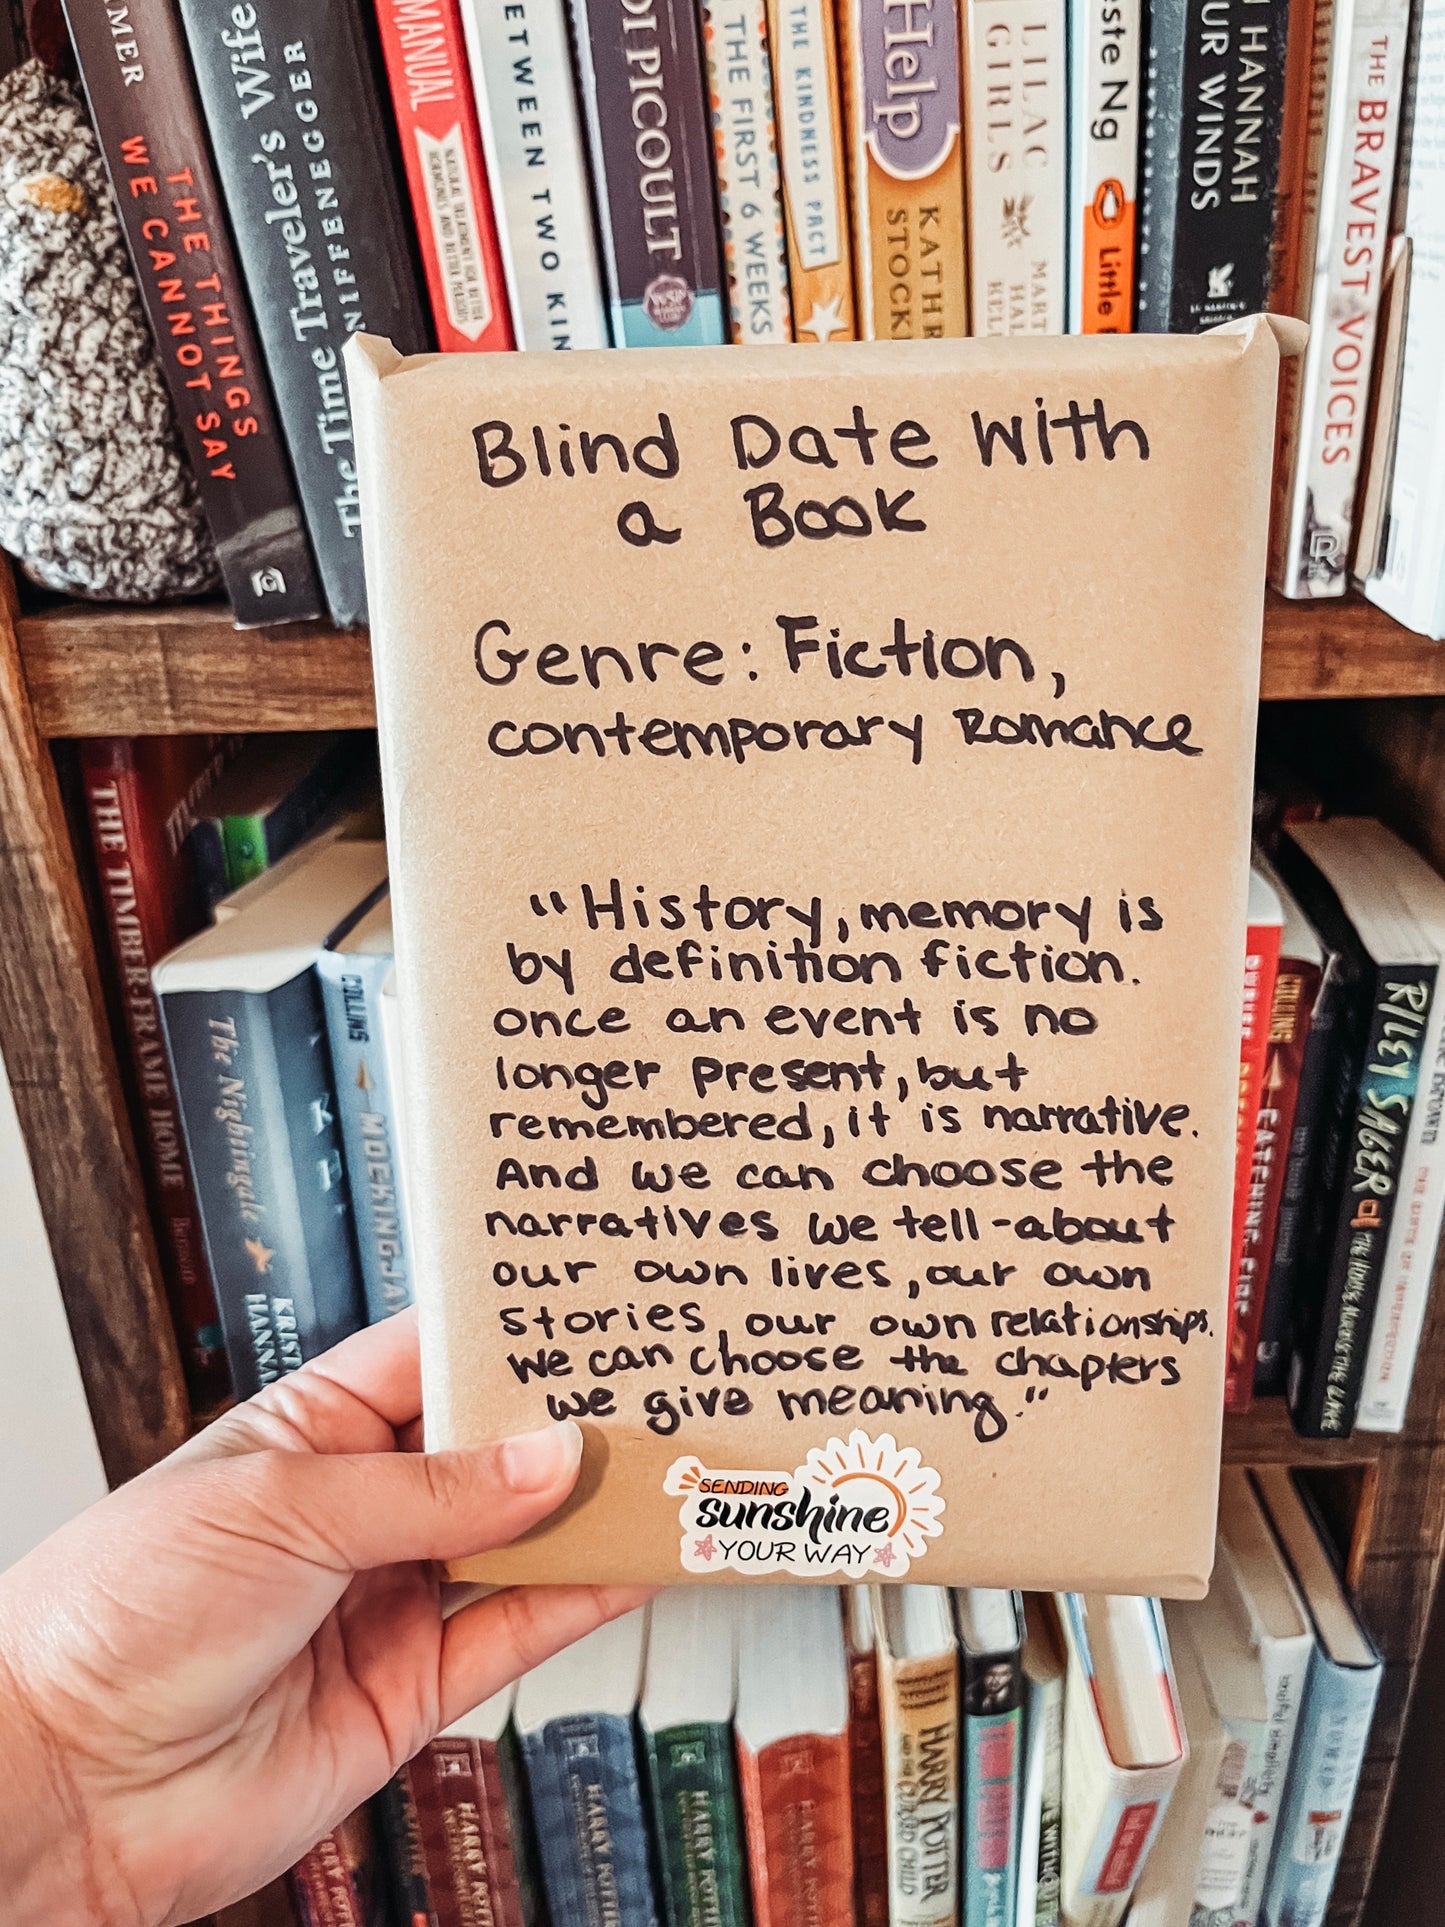 AMER
THE THINGS
WE CANNOT SAY
The Time Traveler's Wife
NIFFENEGGER
MANUAL
ETWEEN TWO KIN
DI PICOULT
THE FIRST 6 WEEKS
THE KINDNESS PACT
Help
KATHR
STOCK
LILAC
GIRLS
MART
HAL
KELL
este Ng
Little
HANNAH
UR WINDS
THE BRAVEST VOICES
Blind Date With
a Book
Genre: Fiction,
contemporary Romance
"History, memory is
by definition fiction.
once an event is no
longer present, but
remembered, it is narrative.
And we can choose the
narratives we tell-about
our own lives, our own
stories, our own relationships.
We can choose the chapters
we give meaning."
SENDING
sunshine
YOUR WAY
THE TIMBER FRAME HOME
The Nightingale
KRIST
HANNA
COLLINS
MOCKINGJA
CATCHING FIRE
RILEY SAGER
THE HOUSE ACROSS THE LAKE
HARRY
HARRY POTT
HARRY POTT
HARRY POTT
HARRY POTTER
AND THE CURSED CHILD